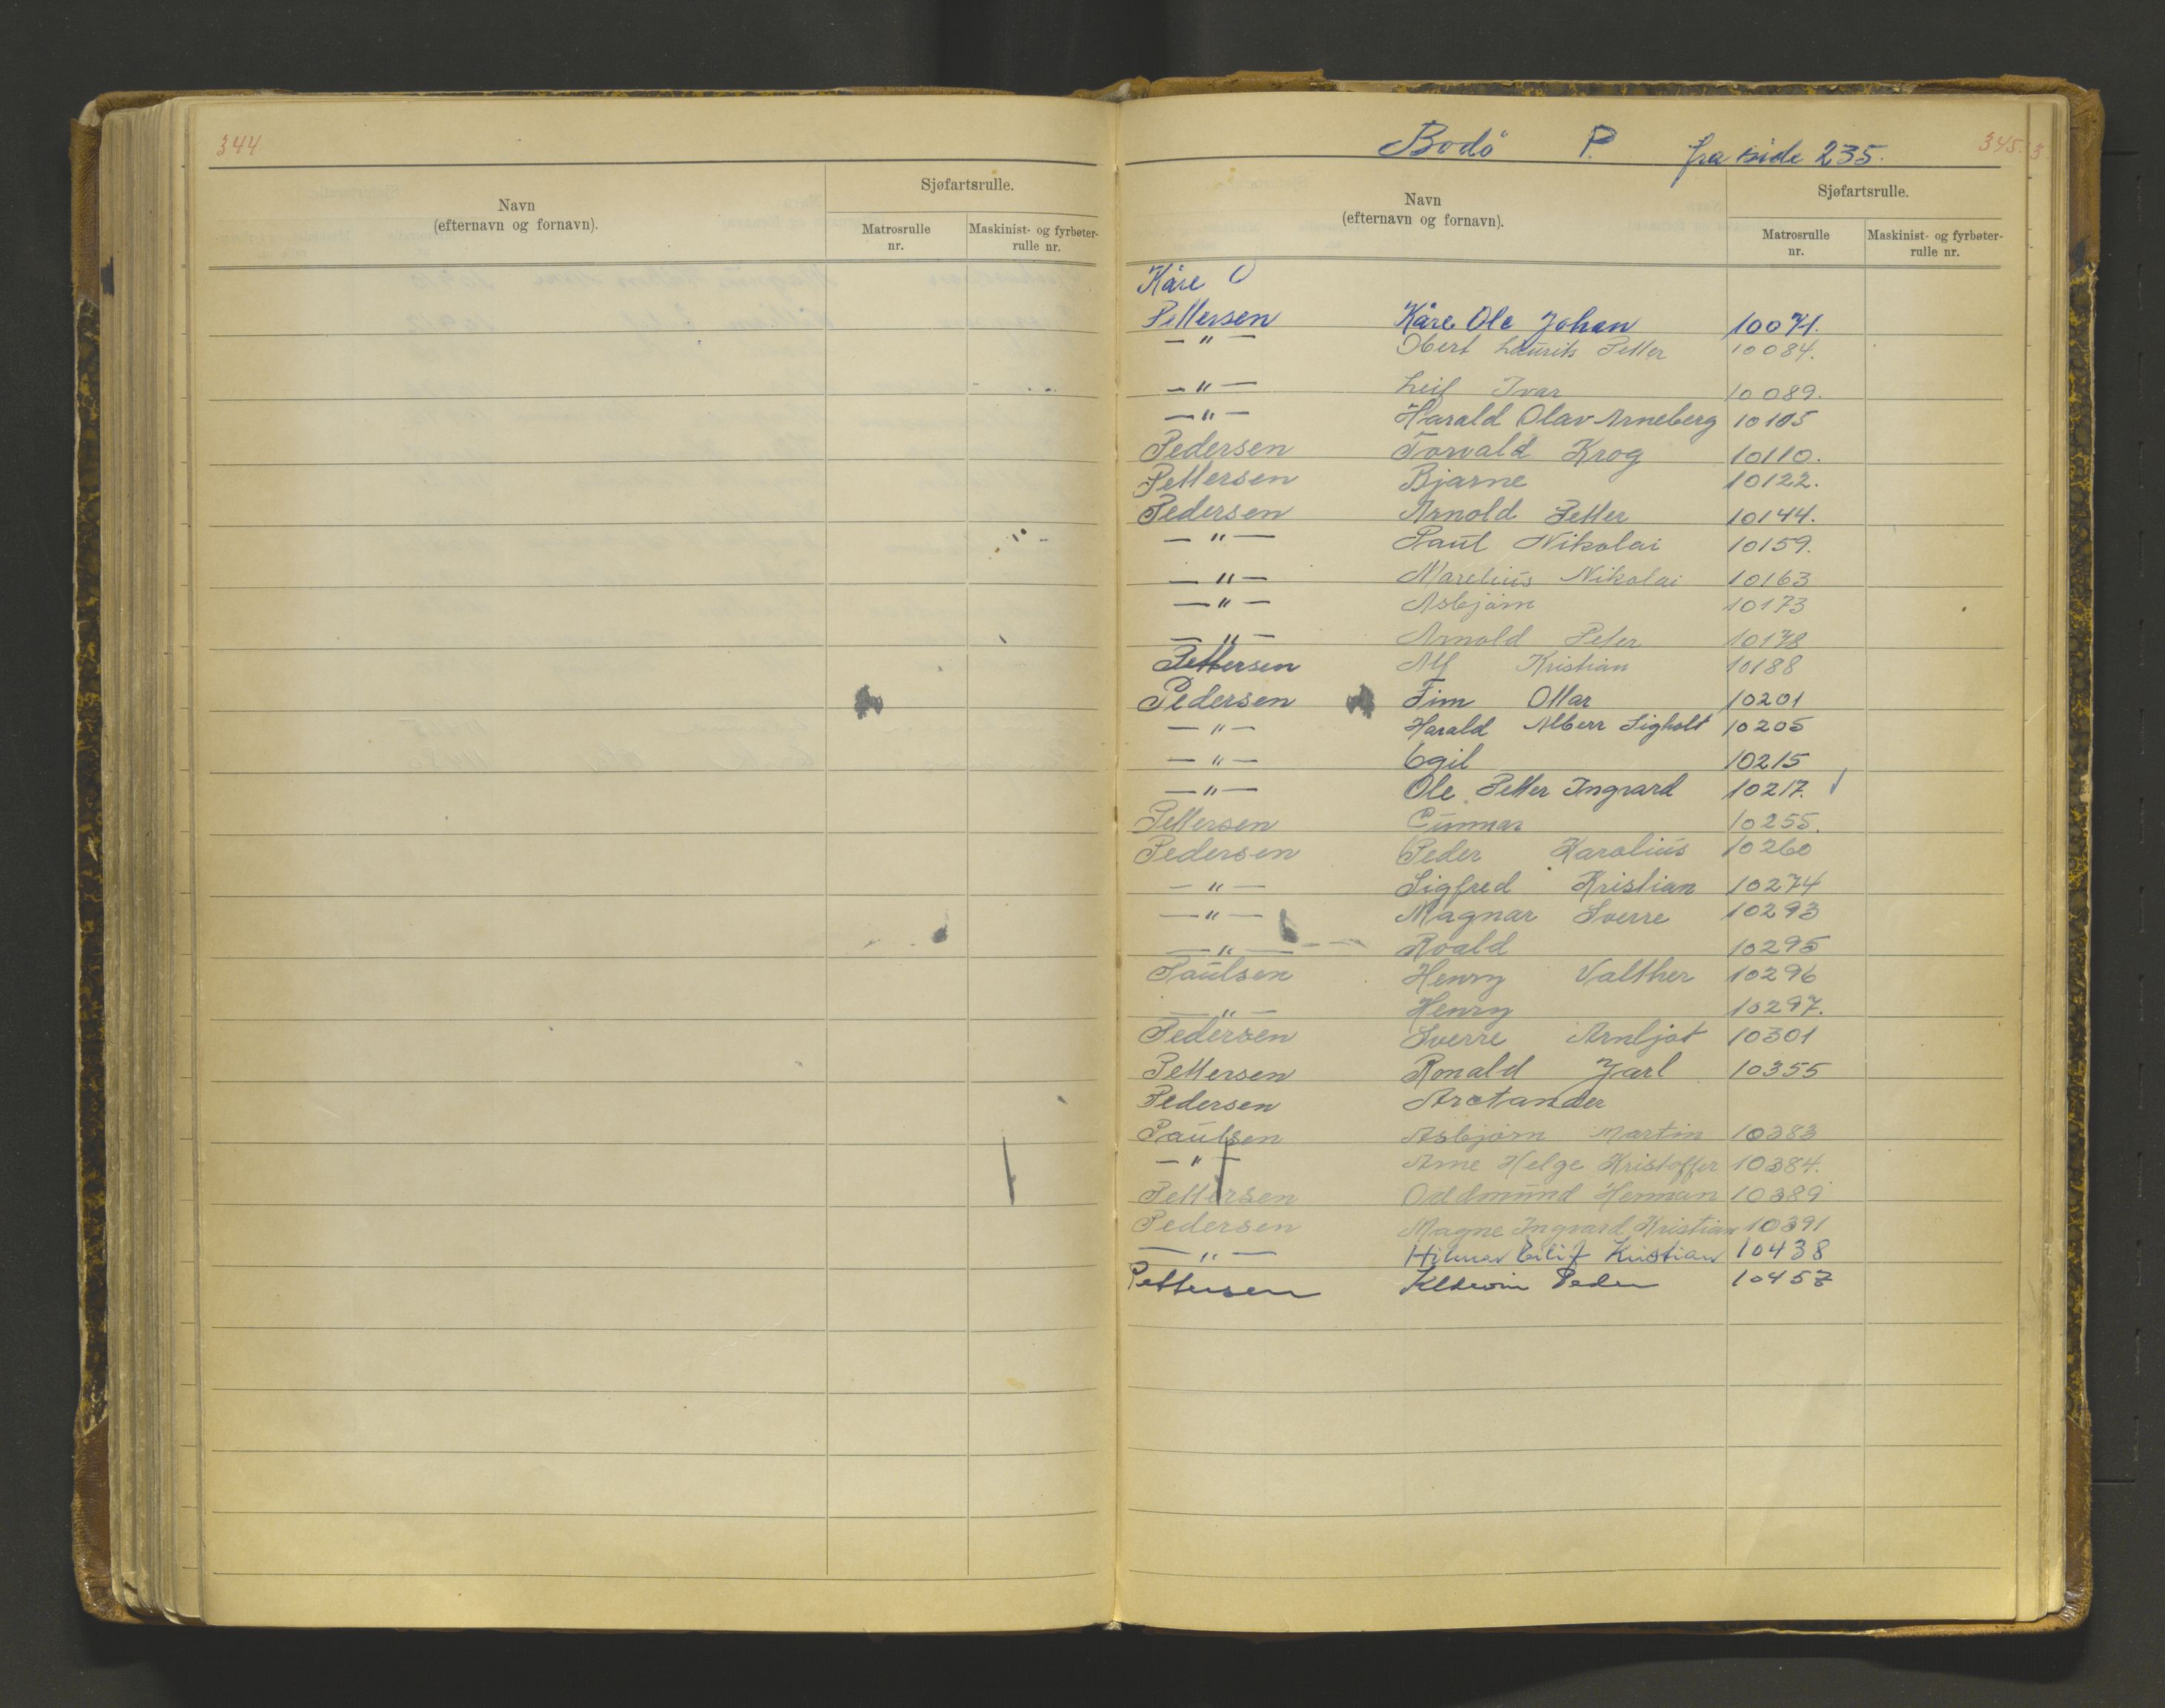 344
Navn
(efternavn og fornavn).
Sjøfartsrulle.
Matrosrulle
nr.
Maskinist- og fyrbøter-
rulle nr.
Bodö P. fra side 235. 345.
Navn
(efternavn og fornavn).
Sjøfartsrulle.
Matrosrulle
nr.
Maskinist- og fyrbøter-
rulle nr.
Kåre O
Pettersen Kåre Ole Johan 10071.
— " — Obert Laurits Petter 10084.
— " — Leif Ivar 10089.
— " — Harald Olav Arneberg 10105
Pedersen Torvald Krog 10110.
Pettersen Bjarne 10122.
Pedersen Arnold Petter 10144.
— " — Paul Nikolai 10159.
— " — Marelius Nikolai 10163
— " — Asbjörn 10173
— " — Arnold Peter 10178
Pettersen Alf Kristian 10188
Pedersen Finn Ottar 10201
— " — Harald Albert Sigholt 10205
— " — Egil 10215
— " — Ole Petter Ingvard 10217.
Pettersen Gunnar 10255.
Pedersen Peder Karolius 10260
— " — Sigfred Kristian 10274
— " — Magnar Sverre 10293
— " — Roald 10295
Paulsen Henry Valther 10296
— " — Henry 10297.
Pedersen Sverre Arnljot 10301
Pettersen Ronald Jarl 10355
Pedersen Arctander
Paulsen Asbjörn Martin 10383
— " — Arne Helge Kristoffer 10384.
Pettersen Oddmund Herman 10389
Pedersen Magne Ingvard Kristian 10391
— " — Hilmar Eilif Kristian 10438
Pettersen Peder 10457